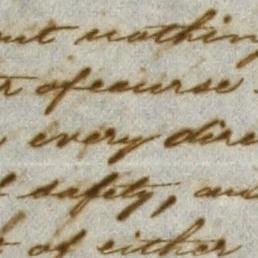 but nothing
of course
every dire
safety, and
of either